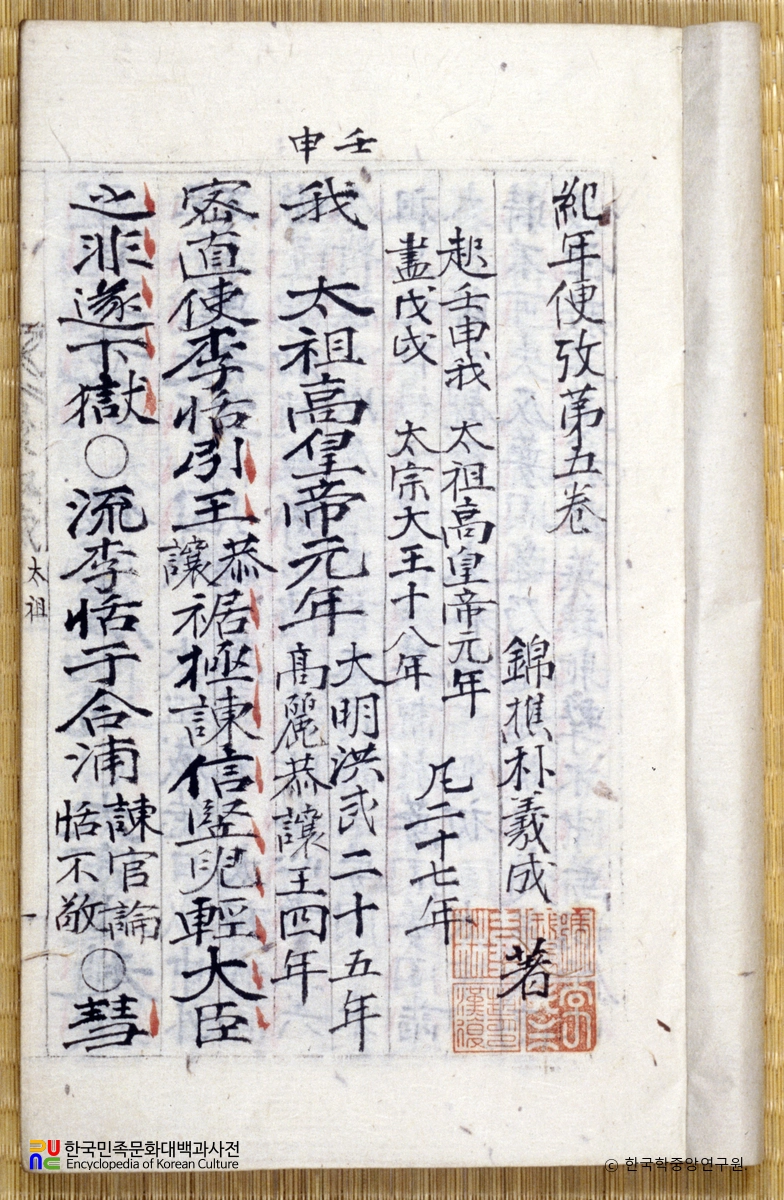 紀年便攷第五卷
錦樵朴義成 著
起壬申我 太祖高皇帝元年
盡戊戌 太宗大王十八年
凡二十七年
壬申
我 太祖高皇帝元年
大明洪武二十五年
高麗恭讓王四年
密直使李恬引王恭讓裾極諫信竪兒輕大臣
之非遂下獄○流李恬于合浦諫官論恬不敬○彗
太祖
한국민족문화대백과사전
Encyclopedia of Korean Culture
© 한국학중앙연구원